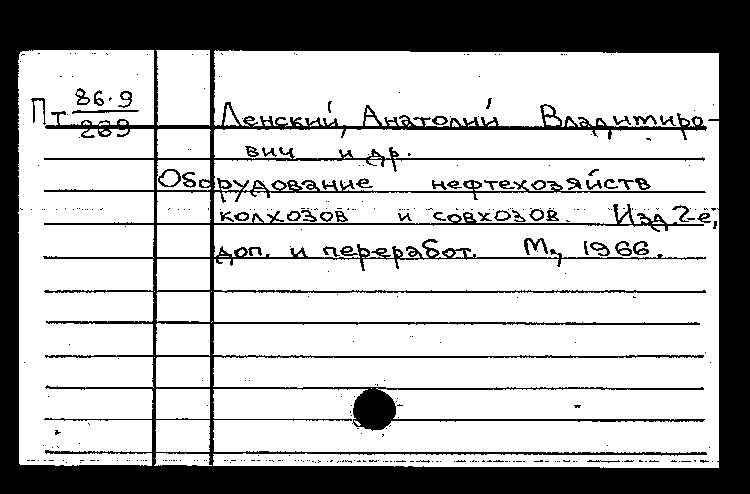 Пт 86-9
269
Ленский, Анатолий Владимиро-
вич и др.
Оборудование нефтехозяйств
колхозов и совхозов. Изд. 2-е,
доп. и переработ. М., 1966.